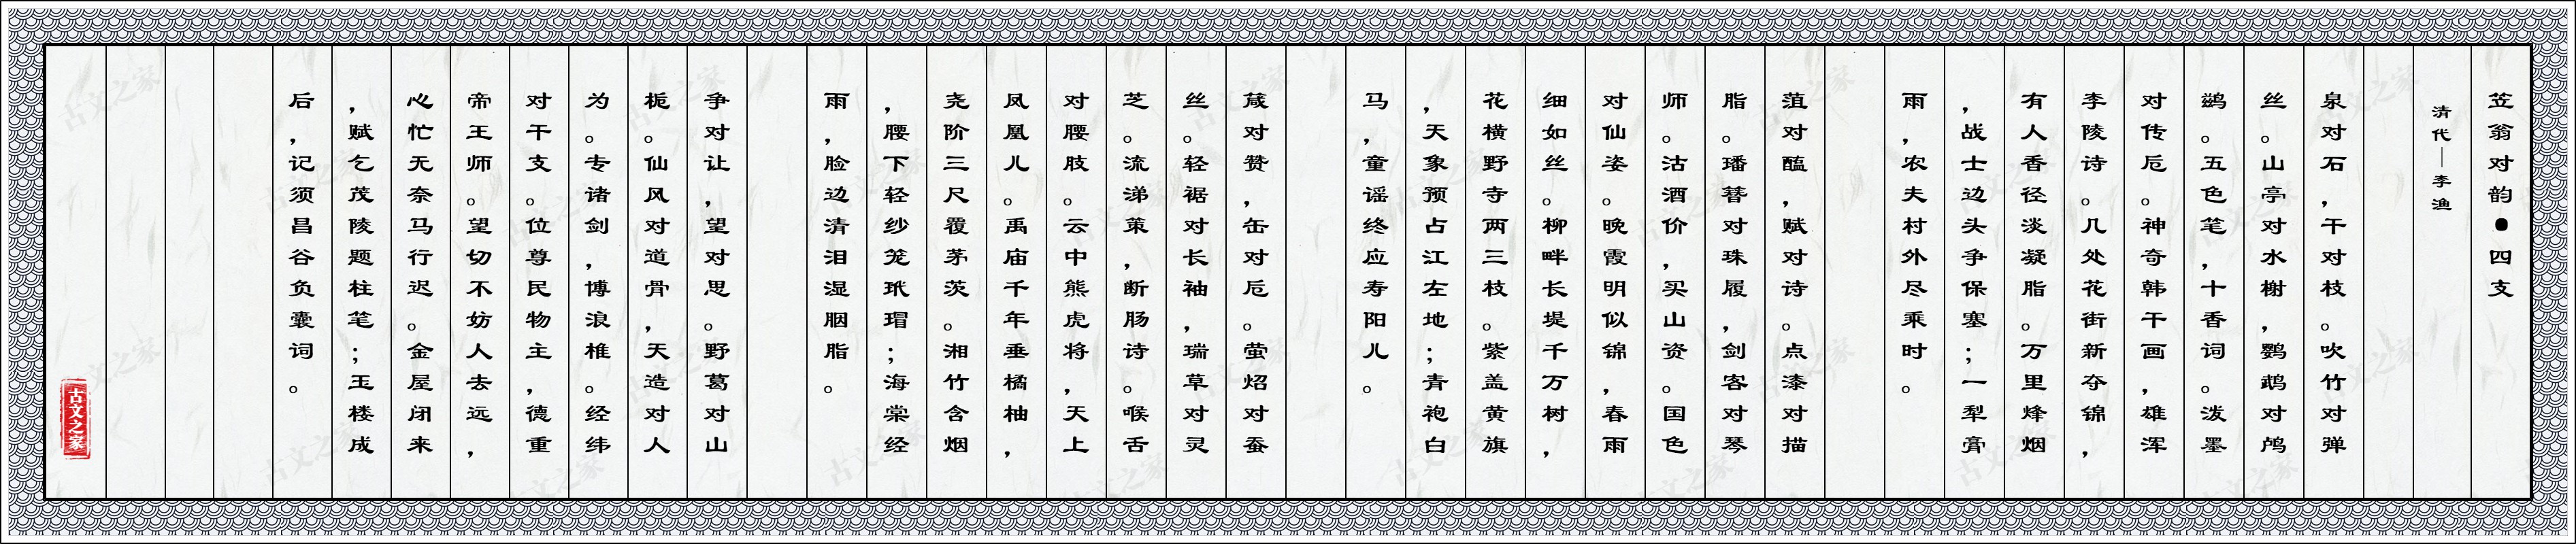 笠翁对韵●四支
清代—李渔
泉对石，干对枝。吹竹对弹
丝。山亭对水榭，鹦鹉对鸬
鹚。五色笔，十香词。泼墨
对传卮。神奇韩干画，雄浑
李陵诗。几处花街新夺锦，
有人香径淡凝脂。万里烽烟
，战士边头争保塞；一犁膏
雨，农夫村外尽乘时。
菹对醢，赋对诗。点漆对描
脂。璠簪对珠履，剑客对琴
师。沽酒价，买山资。国色
对仙姿。晚霞明似锦，春雨
细如丝。柳畔长堤千万树，
花横野寺两三枝。紫盖黄旗
，天象预占江左地；青袍白
马，童谣终应寿阳儿。
箴对赞，缶对卮。萤炤对蚕
丝。轻裾对长袖，瑞草对灵
芝。流涕策，断肠诗。喉舌
对腰肢。云中熊虎将，天上
凤凰儿。禹庙千年垂橘柚，
尧阶三尺覆茅茨。湘竹含烟
，腰下轻纱笼玳瑁；海棠经
雨，脸边清泪湿胭脂。
争对让，望对思。野葛对山
栀。仙风对道骨，天造对人
为。专诸剑，博浪椎。经纬
对干支。位尊民物主，德重
帝王师。望切不妨人去远，
心忙无奈马行迟。金屋闭来
，赋乞茂陵题柱笔；玉楼成
后，记须昌谷负囊词。
古文之家